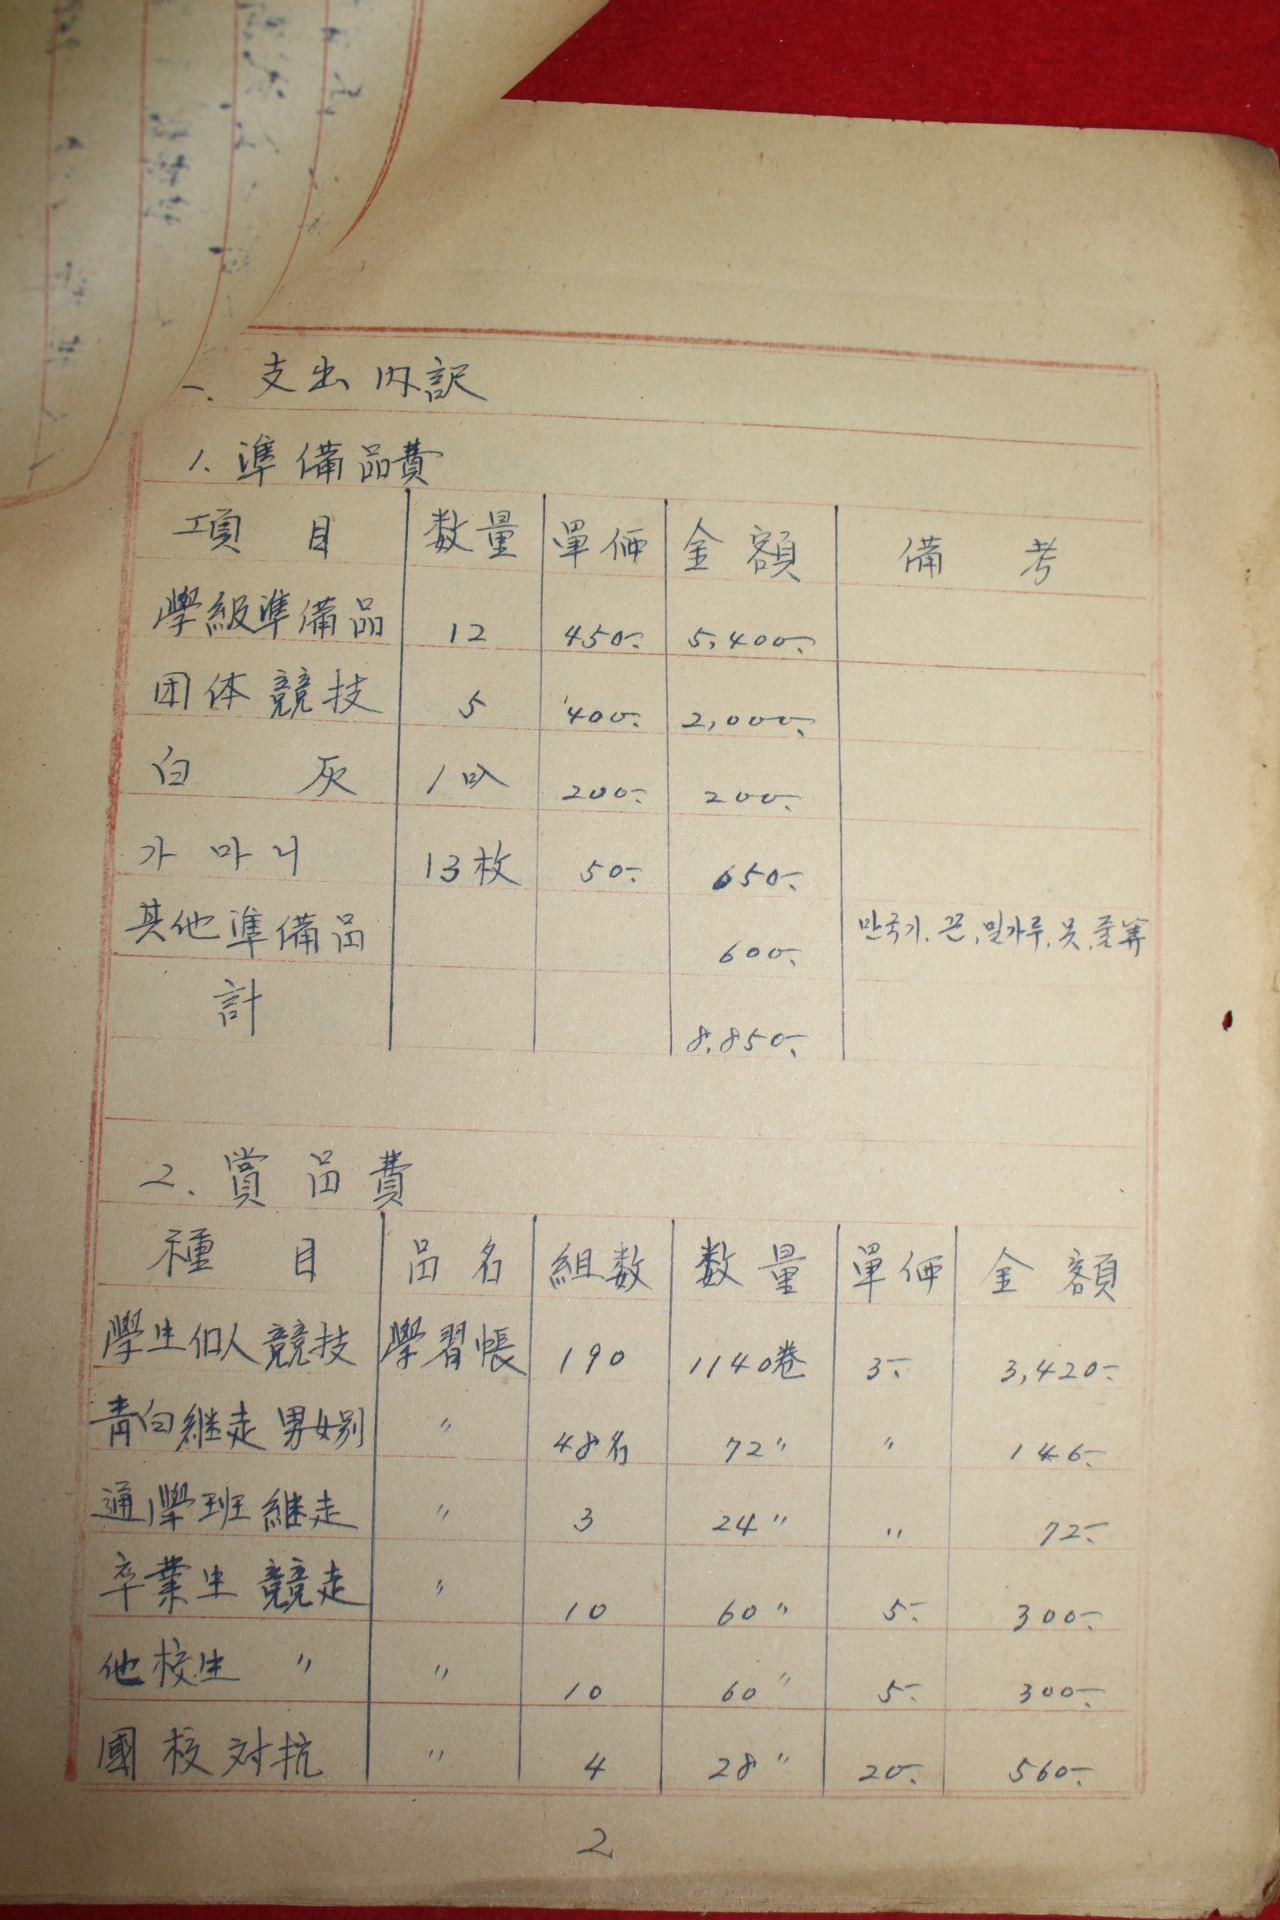 一、支出内訳
1. 準備品費
項目 数量 單価 金額 備考
學級準備品 12 450- 5,400-
団体競技 5 400- 2,000-
白灰 1叺 200- 200-
가마니 13枚 50- 650-
其他準備品 600- 만국기, 끈, 밀가루, 못, 줄等
計 8,850-
2. 賞品費
種目 品名 組数 数量 單価 金額
學生個人競技 學習帳 190 1140巻 3- 3,420-
青白継走男女別 〃 48名 72〃 〃 146-
通學班継走 〃 3 24〃 〃 72-
卒業生競走 〃 10 60〃 5- 300-
他校生〃 〃 10 60〃 5- 300-
國校対抗 〃 4 28〃 20- 560-
2